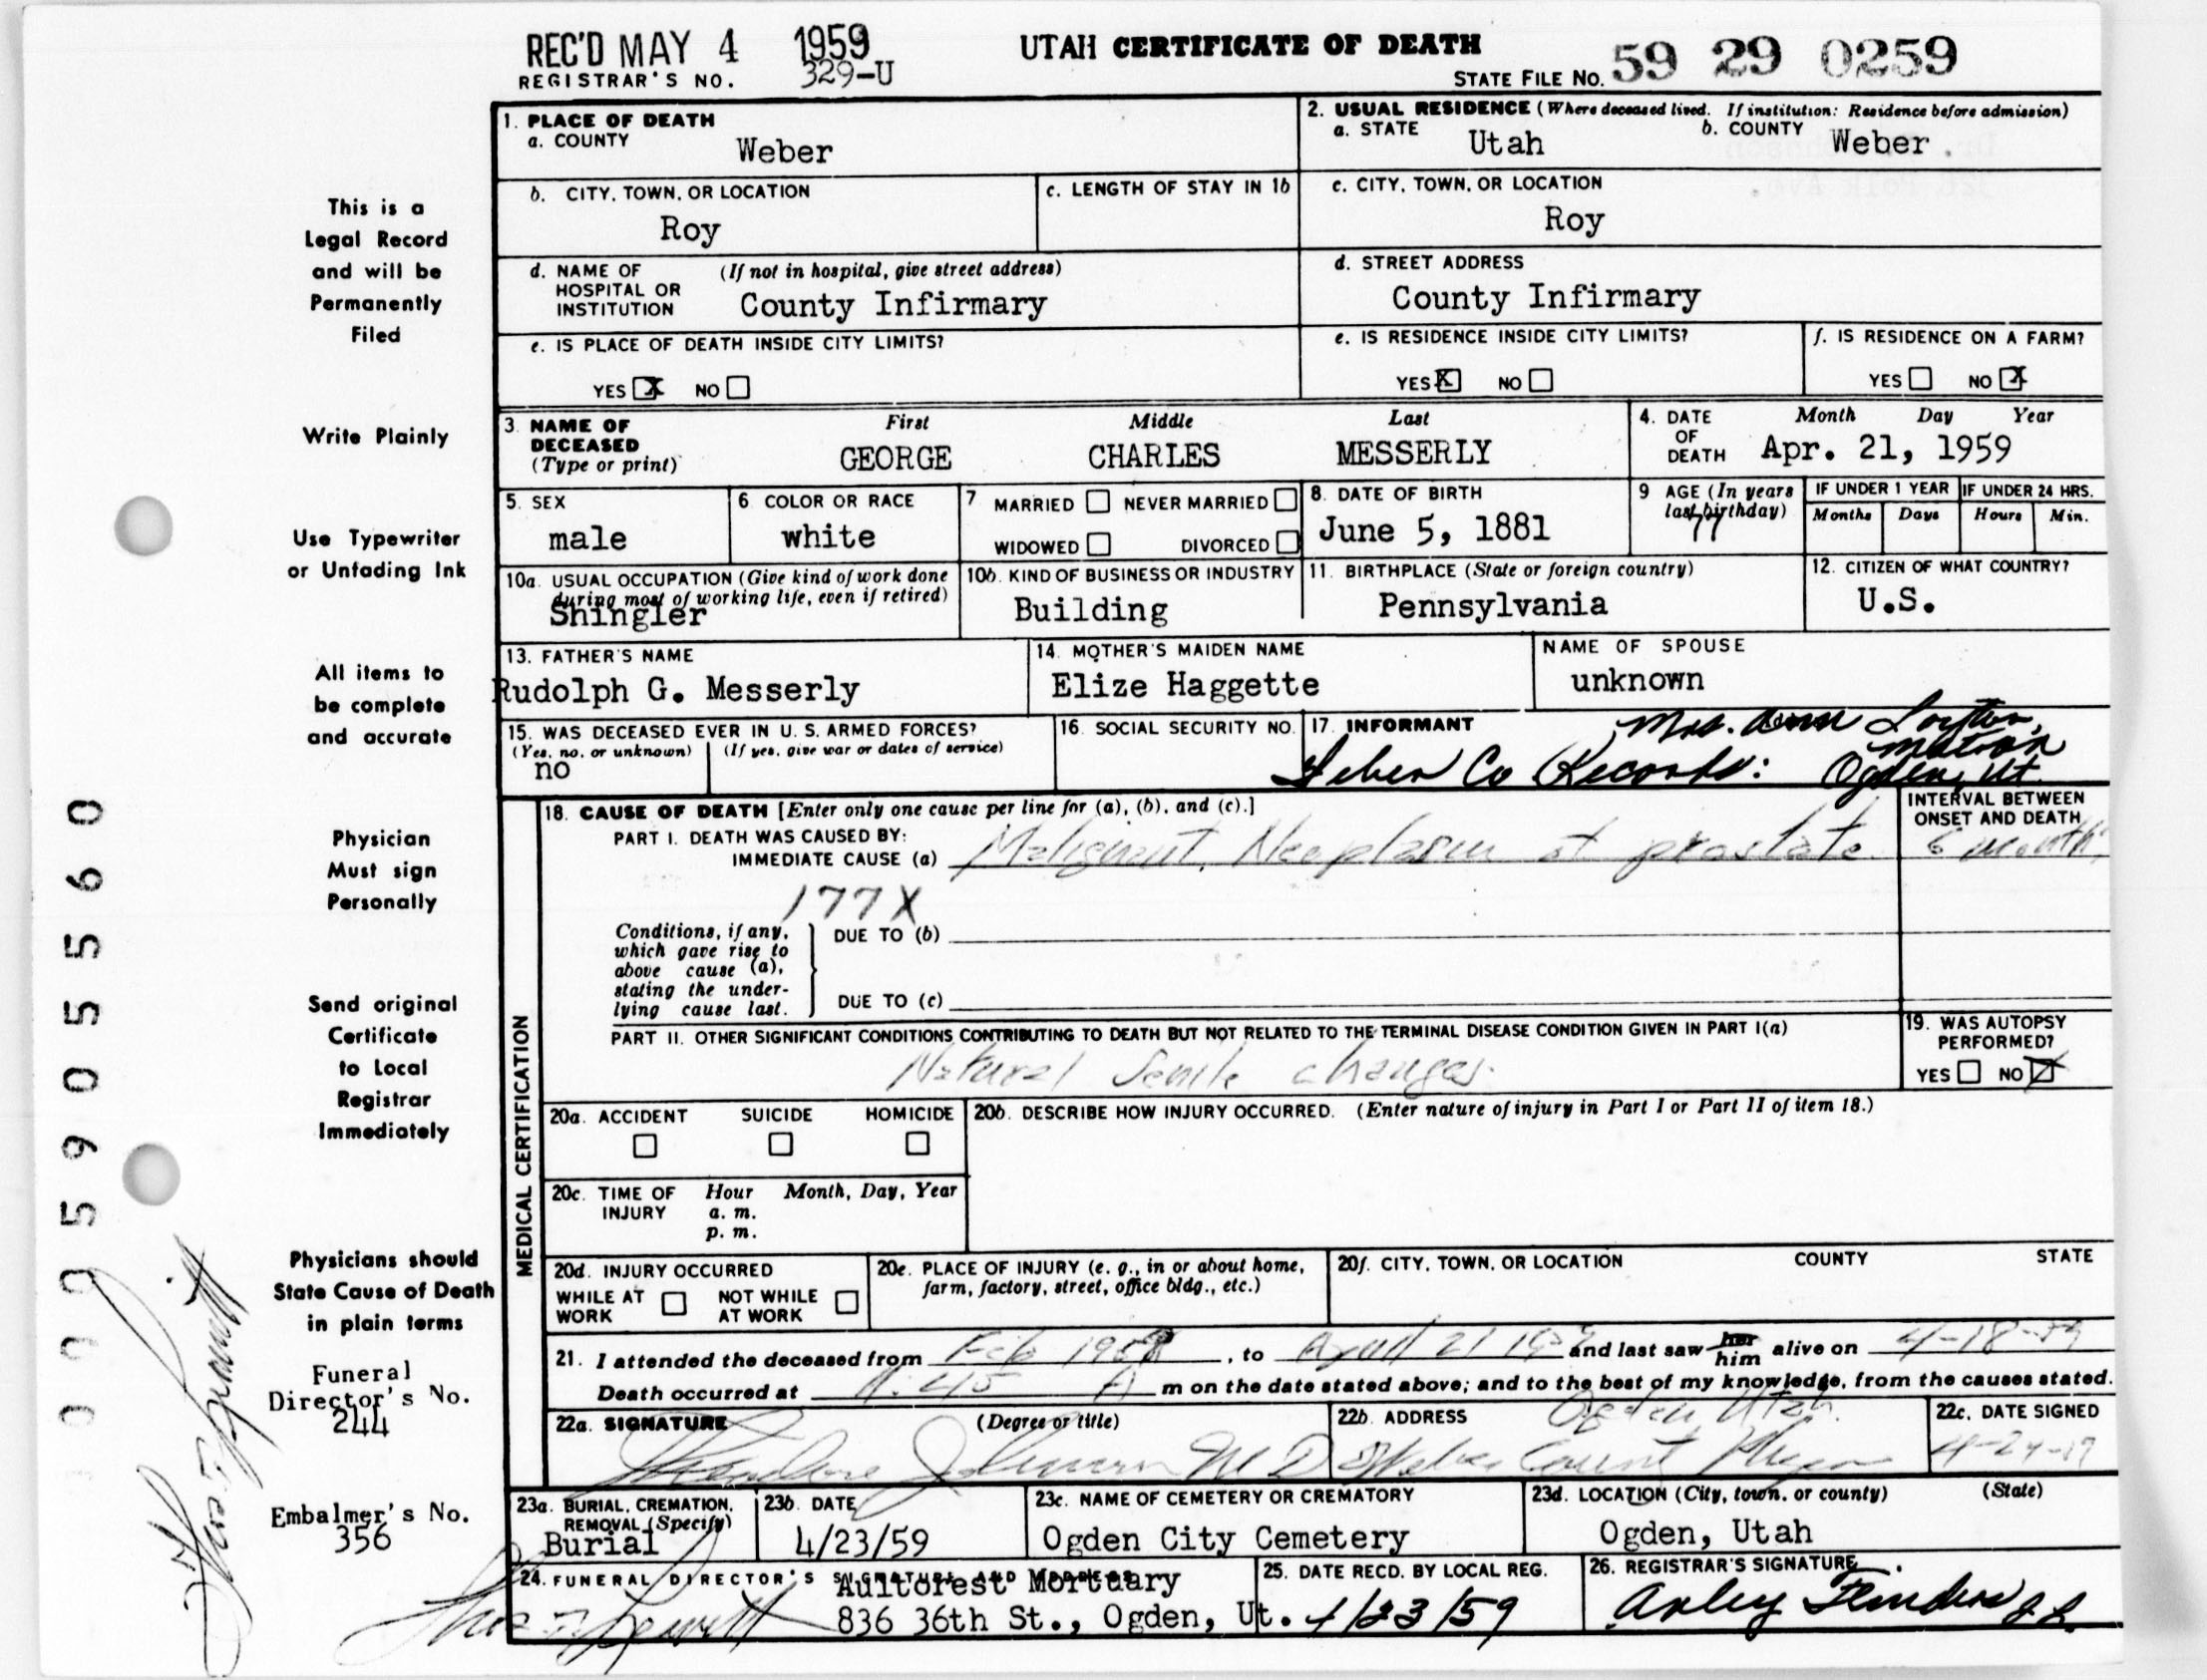 REC'D MAY 4 1959
UTAH CERTIFICATE OF DEATH
REGISTRAR'S NO. 329-U
STATE FILE NO. 59 29 0259
1. PLACE OF DEATH
a. COUNTY
Weber
2. USUAL RESIDENCE (Where deceased lived. If institution: Residence before admission)
a. STATE Utah
b. COUNTY Weber
b. CITY, TOWN, OR LOCATION
Roy
c. LENGTH OF STAY IN 1b
c. CITY, TOWN, OR LOCATION
Roy
d. NAME OF HOSPITAL OR INSTITUTION
(If not in hospital, give street address)
County Infirmary
d. STREET ADDRESS
County Infirmary
e. IS PLACE OF DEATH INSIDE CITY LIMITS?
YES X NO
e. IS RESIDENCE INSIDE CITY LIMITS?
YES X NO
f. IS RESIDENCE ON A FARM?
YES NO X
3. NAME OF DECEASED
(Type or print)
First
GEORGE
Middle
CHARLES
Last
MESSERLY
4. DATE OF DEATH
Month Day Year
Apr. 21, 1959
5. SEX
male
6 COLOR OR RACE
white
7 MARRIED NEVER MARRIED
WIDOWED DIVORCED
8. DATE OF BIRTH
June 5, 1881
9 AGE (In years last birthday)
77
IF UNDER 1 YEAR
Months Days
IF UNDER 24 HRS.
Hours Min.
10a. USUAL OCCUPATION (Give kind of work done
during most of working life, even if retired)
Shingler
10b. KIND OF BUSINESS OR INDUSTRY
Building
11. BIRTHPLACE (State or foreign country)
Pennsylvania
12. CITIZEN OF WHAT COUNTRY?
U.S.
13. FATHER'S NAME
Rudolph G. Messerly
14. MOTHER'S MAIDEN NAME
Elize Haggette
NAME OF SPOUSE
unknown
15. WAS DECEASED EVER IN U. S. ARMED FORCES?
(Yes, no, or unknown) (If yes, give war or dates of service)
no
16. SOCIAL SECURITY NO.
17. INFORMANT
Mrs. Ann Layton,
Matron
Weber Co Records: Ogden, Ut.
MEDICAL CERTIFICATION
18. CAUSE OF DEATH [Enter only one cause per line for (a), (b), and (c).]
PART I. DEATH WAS CAUSED BY:
IMMEDIATE CAUSE (a) Malignant Neoplasm of prostate
INTERVAL BETWEEN
ONSET AND DEATH
6 months
177X
Conditions, if any,
which gave rise to
above cause (a),
stating the under-
lying cause last.
DUE TO (b)
DUE TO (c)
PART II. OTHER SIGNIFICANT CONDITIONS CONTRIBUTING TO DEATH BUT NOT RELATED TO THE TERMINAL DISEASE CONDITION GIVEN IN PART I(a)
Natural Senile changes.
19. WAS AUTOPSY
PERFORMED?
YES NO
20a. ACCIDENT SUICIDE HOMICIDE
20b. DESCRIBE HOW INJURY OCCURRED. (Enter nature of injury in Part I or Part II of item 18.)
20c. TIME OF INJURY
Hour Month, Day, Year
a. m.
p. m.
20d. INJURY OCCURRED
WHILE AT WORK
NOT WHILE AT WORK
20e. PLACE OF INJURY (e. g., in or about home,
farm, factory, street, office bldg., etc.)
20f. CITY, TOWN, OR LOCATION COUNTY STATE
21. I attended the deceased from Feb , to April 21 and last saw her him alive on 4-18-59
Death occurred at A m on the date stated above; and to the best of my knowledge, from the causes stated.
22a. SIGNATURE (Degree or title)
Theodore Johnson MD
22b. ADDRESS
Ogden, Utah
Weber County
22c. DATE SIGNED
23a. BURIAL, CREMATION,
REMOVAL (Specify)
Burial
23b. DATE
4/23/59
23c. NAME OF CEMETERY OR CREMATORY
Ogden City Cemetery
23d. LOCATION (City, town, or county) (State)
Ogden, Utah
24. FUNERAL DIRECTOR'S SIGNATURE AND ADDRESS
Aultorest Mortuary
836 36th St., Ogden, Ut.
25. DATE RECD. BY LOCAL REG.
4/23/59
26. REGISTRAR'S SIGNATURE
This is a
Legal Record
and will be
Permanently
Filed
Write Plainly
Use Typewriter
or Unfading Ink
All items to
be complete
and accurate
Physician
Must sign
Personally
Send original
Certificate
to Local
Registrar
Immediately
Physicians should
State Cause of Death
in plain terms
Funeral
Director's No.
244
Embalmer's No.
356